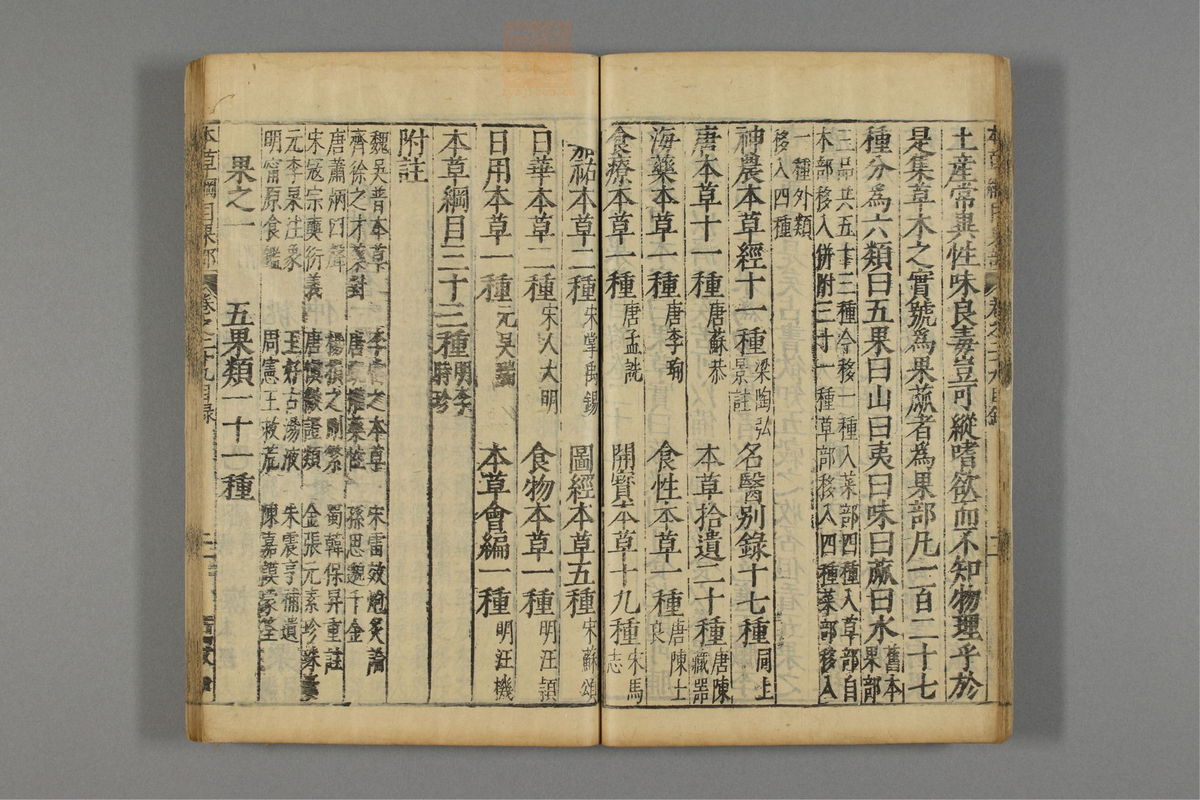 土產常異性味良毒豈可縱嗜欲而不知物理乎於
是集草木之實號為果蓏者為果部凡一百二十七
種分爲六類曰五果曰山曰夷曰味曰蓏曰水舊本果部
三品共五十三種今移一種入菜部四種入草部自
木部移入併附三十一種草部移入四種菜部移入
一種外類
移入四種
神農本草經十一種梁陶弘景註 名醫別錄十七種同上
唐本草十一種唐蘇恭 本草拾遺二十種唐陳藏器
海藥本草一種唐李珣 食性本草一種唐陳士良
食療本草一種唐孟詵 開寶本草十九種宋馬志
嘉祐本草二種宋掌禹錫 圖經本草五種宋蘇頌
日華本草二種宋人大明 食物本草一種明汪穎
日用本草一種元吳瑞 本草會編一種明汪機
本草綱目三十三種明李時珍
附註
魏吳普本草 李當之本草 宋雷斅炮炙論
齊徐之才藥對 唐 藥性 孫思邈千金
唐蕭炳四聲 楊損之刪繁 蜀韓保昇重註
宋寇宗奭衍義 唐慎微證類 金張元素珍珠囊
元李杲法象 王好古湯液 朱震亨補遺
明甯原食鑑 周憲王救荒 陳嘉謨蒙筌
果之一 五果類一十一種
本草綱目果部 卷之二十九目録 二